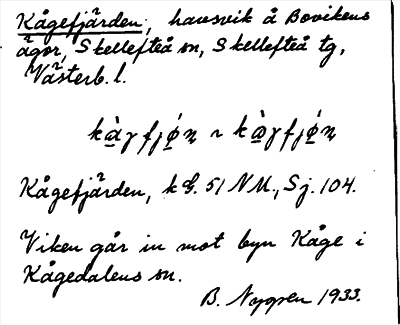 Kågefjärden, havsvik å Bovikens
ägor, Skellefteå sn, Skellefteå tg,
Västerb. l.
Kågefjärden, k 51 NU., Sj. 104.
Viken går in mot byn Kåge i
Kågedalens sn.
B. Nygren 1933.